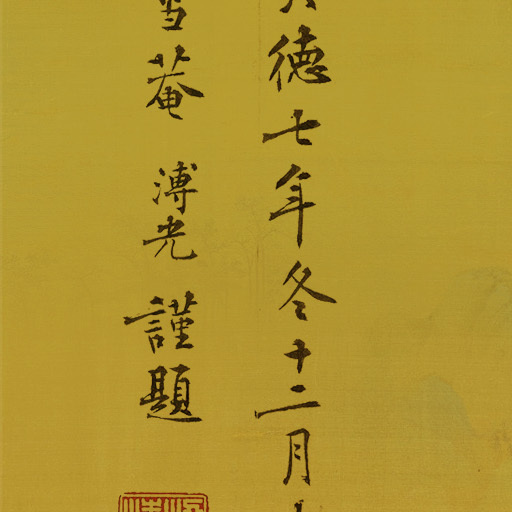 德七年冬十二月
菴溥光謹題